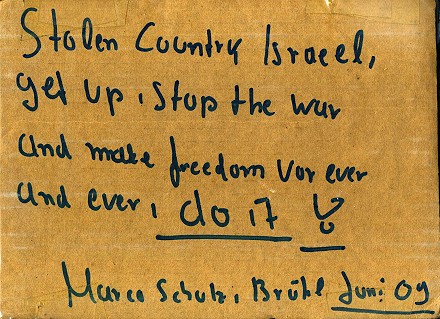 Stolen Country Israeel,
get up, stop the war
and make freedom vor ever
and ever, do it !
Marco Schulz, Brühl Juni 09